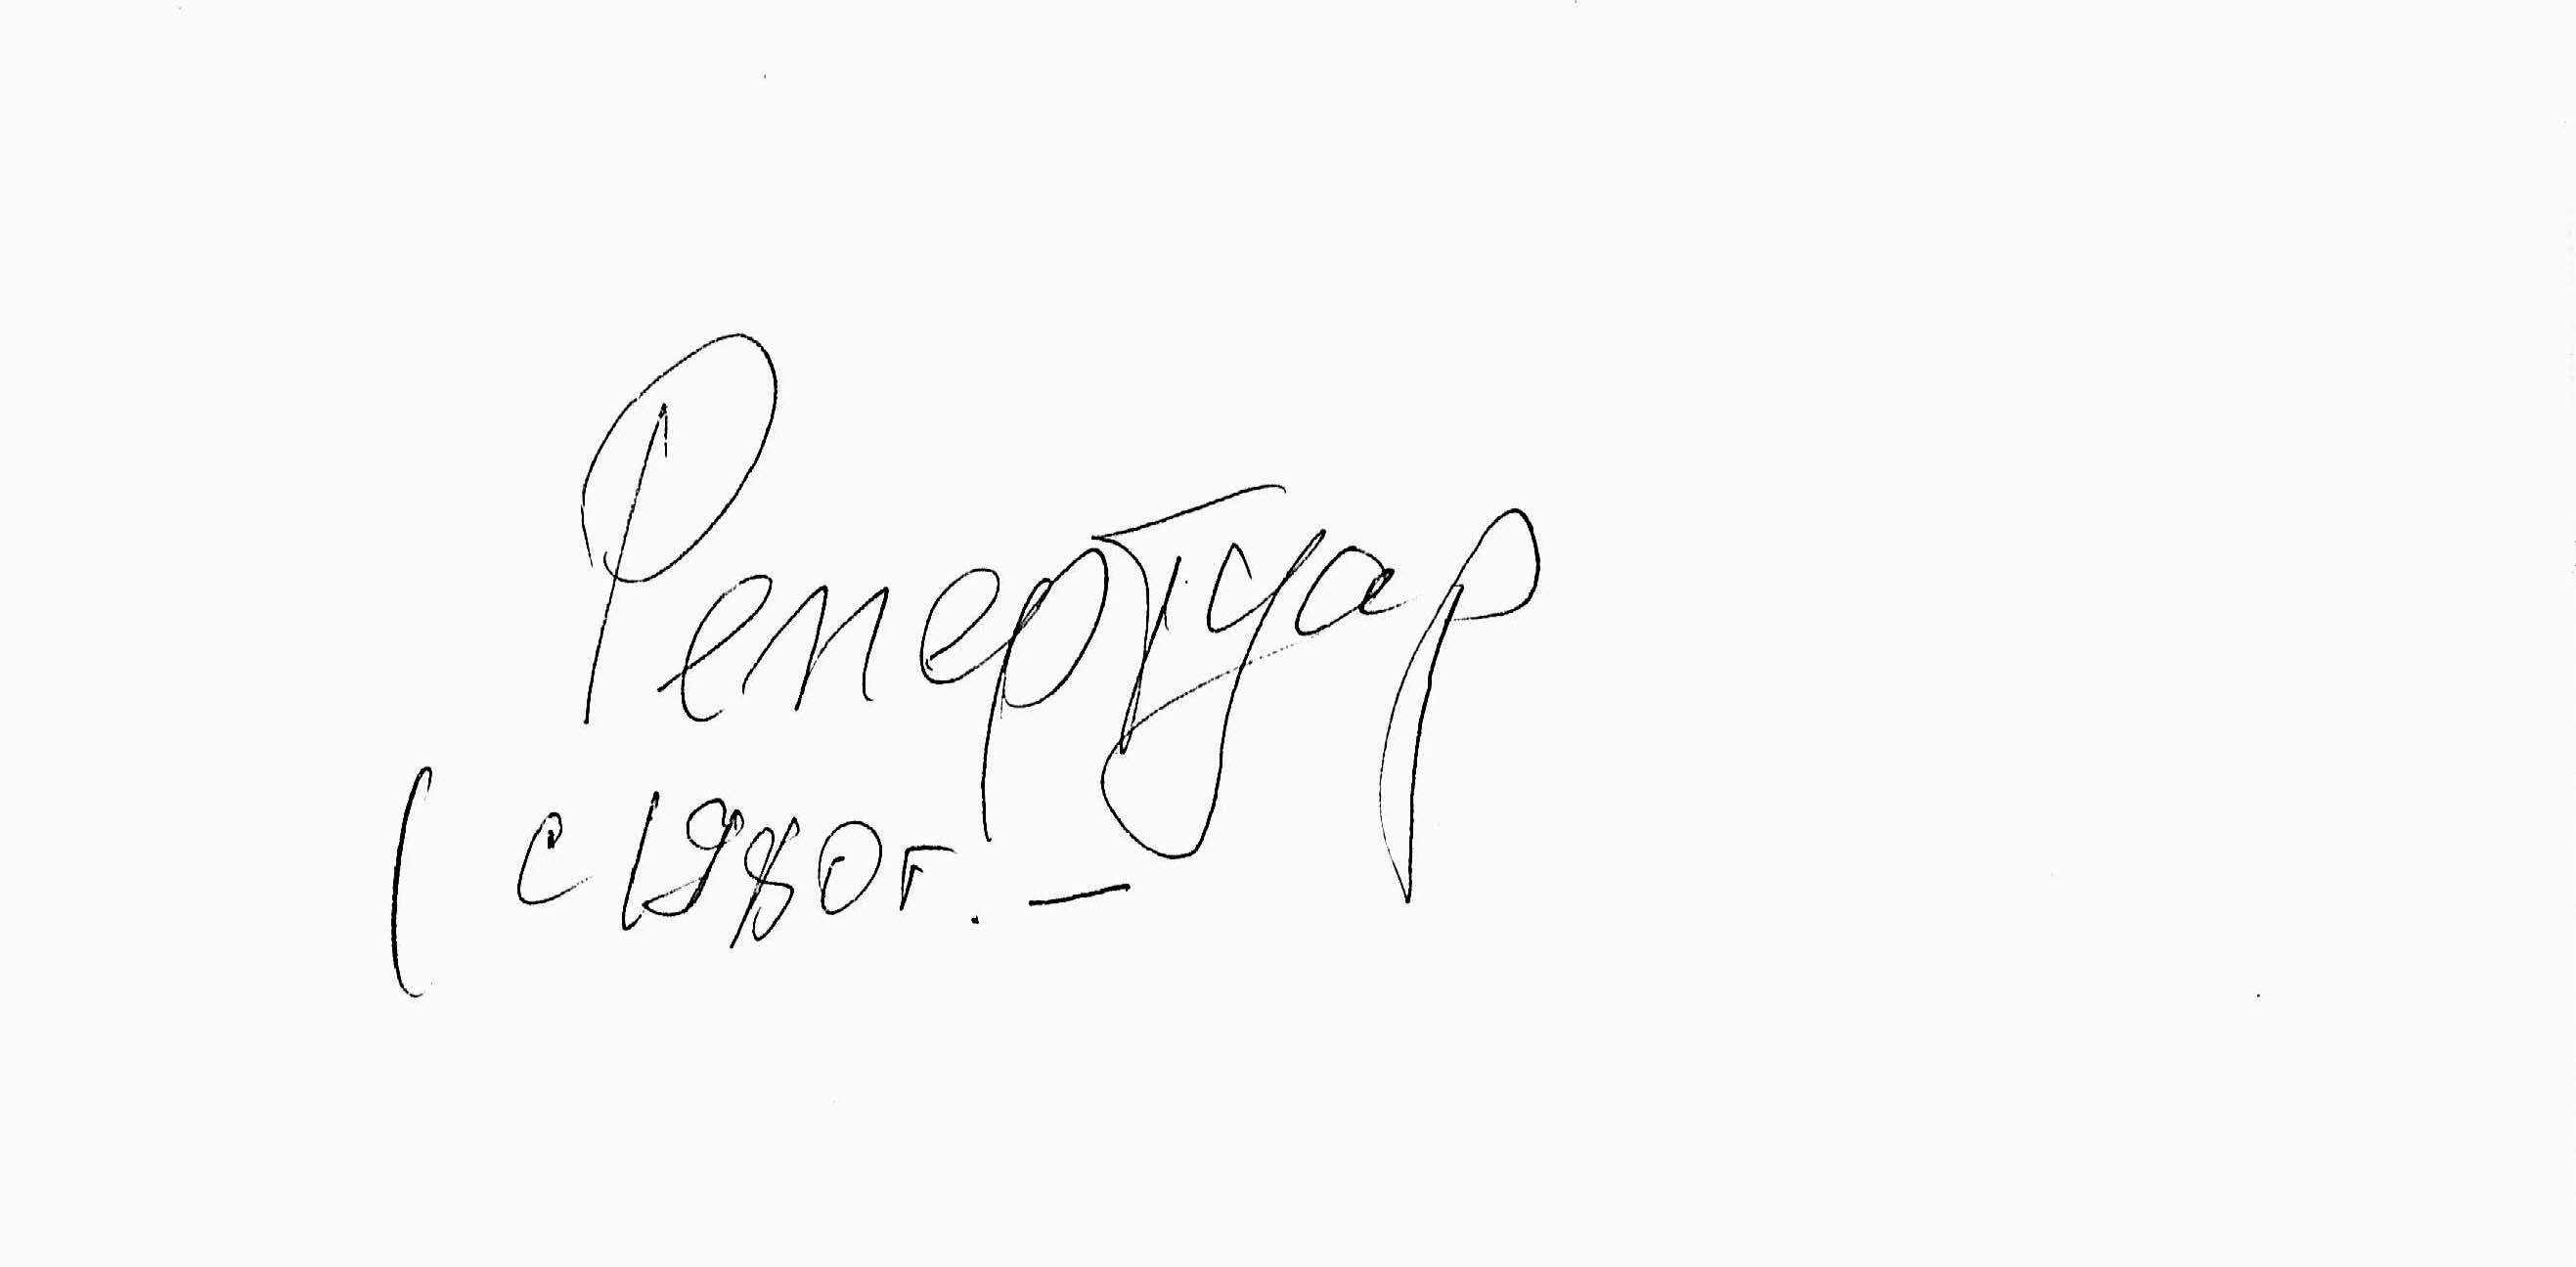 Репертуар
( с 1980г. –